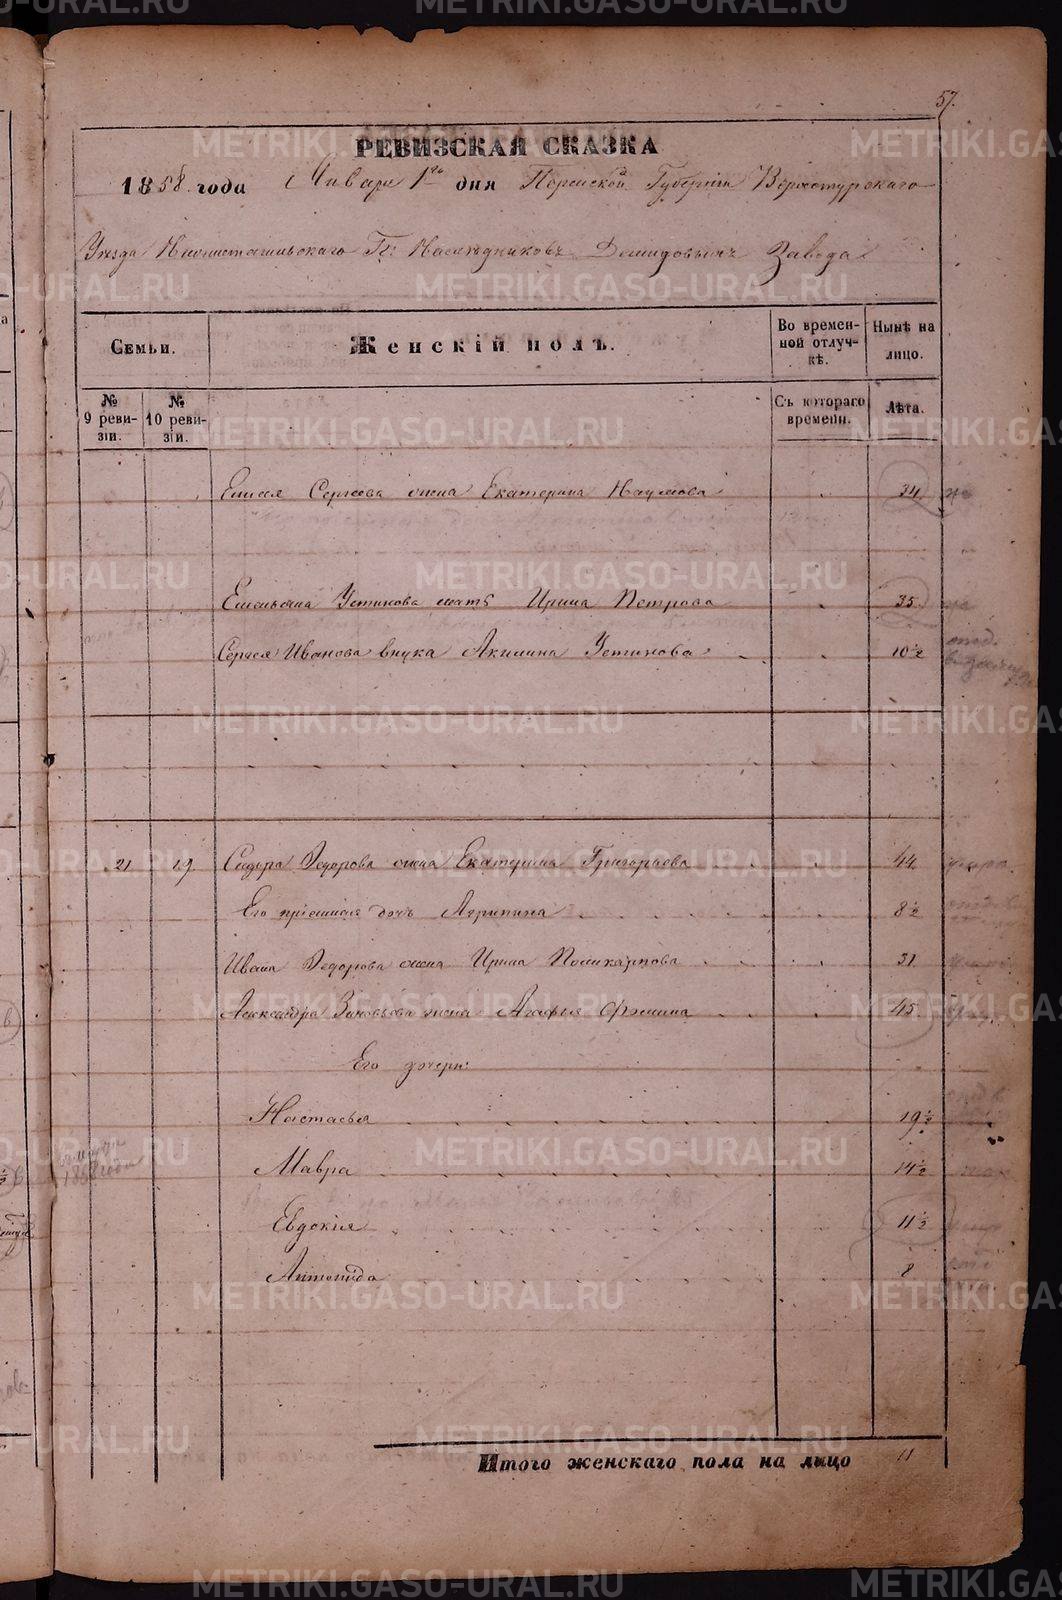 57.
РЕВИЗСКАЯ СКАЗКА
1858 года Января 1го дня Пермской Губерніи Верхотурскаго
Уѣзда Нижнетагильскаго Гг. Наслѣдниковъ Демидовыхъ Завода
Семьи. Женскій полъ. Во временной отлучкѣ. Нынѣ на лицо.
№ 9 ревизіи. № 10 ревизіи. Съ котораго времени. Лѣта.
Елисея Сергѣева жена Екатерина Наумова 34
Емельяна Устинова мать Ирина Петрова 35
Сергея Иванова внука Акилина Устинова 10½
21 19 Сидора Федорова жена Екатерина Григорьева 44
Его пріемная дочь Агрипина 8½
Ивана Федорова жена Ирина Поликарпова 31
Александра Зиновьева жена Агафья Фомина 45
Его дочери:
Настасья 19½
Мавра 14½
1858 года
Евдокія 11½
Антонида 8
Итого женскаго пола на лицо 11
METRIKI.GASO-URAL.RU